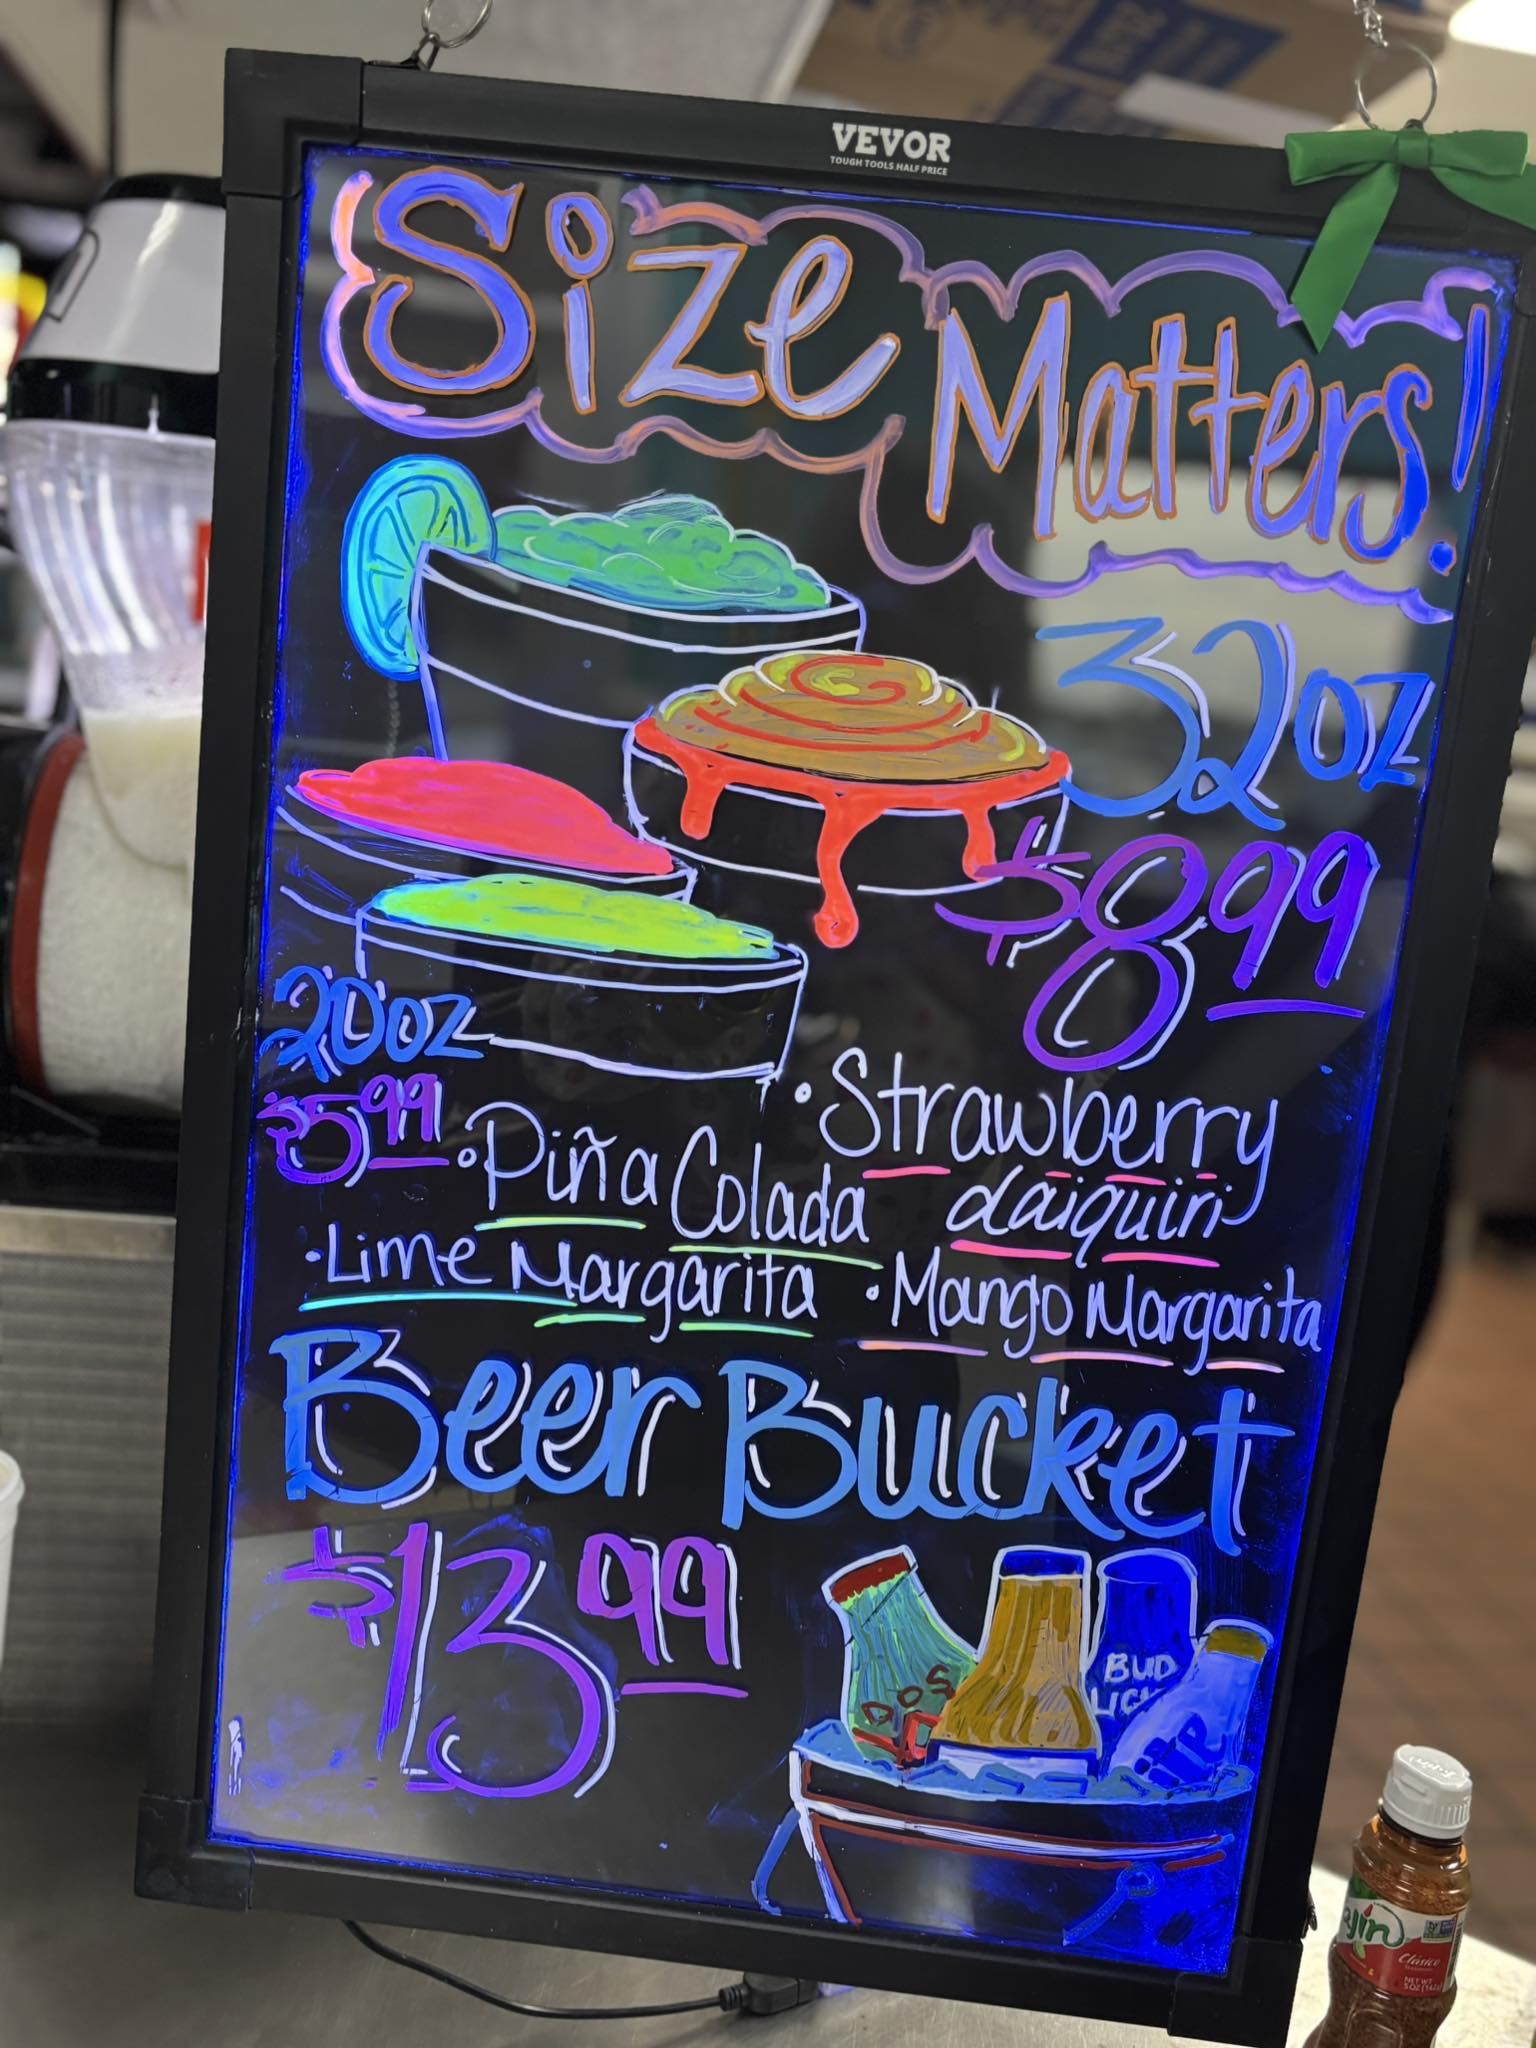 VEVOR
TOUGH TOOLS, HALF PRICE
Size
Matters!
32oz
$8.99
20oz
$5.99
• Strawberry
daiquiri
• Piña Colada
• Lime Margarita
• Mango Margarita
Beer Bucket
$13.99
DOS
BUD
LIGH
Clásico
NET WT
5 OZ (142g)